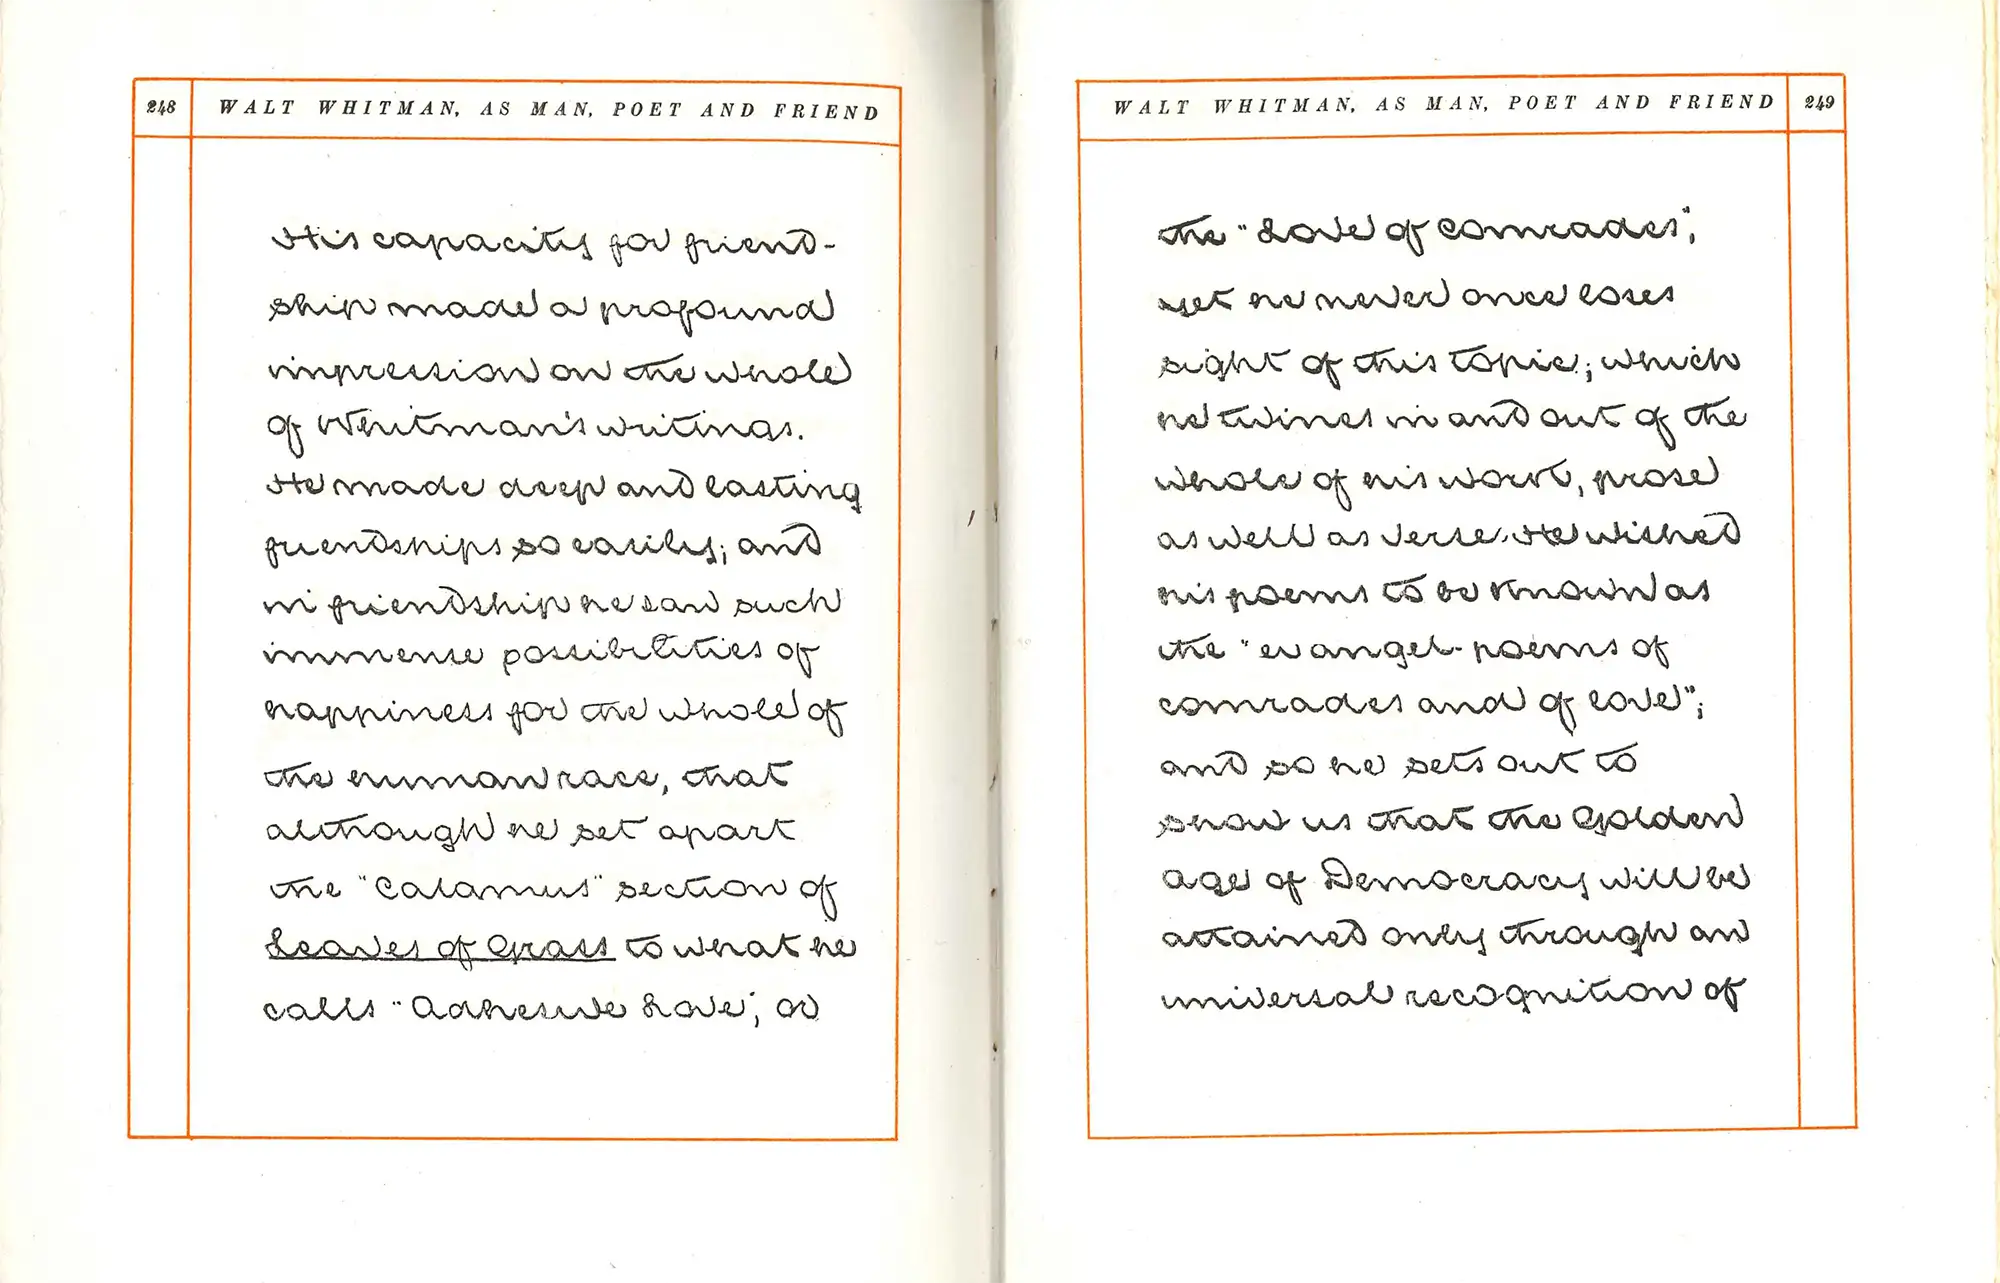 248 WALT WHITMAN, AS MAN, POET AND FRIEND
His capacity for friend-
ship made a profound
impression on the whole
of Whitman's writings.
He made deep and lasting
friendships so easily; and
in friendship he saw such
immense possibilities of
happiness for the whole of
the human race, that
although he set apart
the "Calamus" section of
Leaves of Grass to what he
calls "Adhesive Love", or
WALT WHITMAN, AS MAN, POET AND FRIEND 249
the "Love of Comrades",
yet he never once loses
sight of this topic; which
he twines in and out of the
whole of his work, prose
as well as verse. He wished
his poems to be known as
the "evangel-poems of
comrades and of love";
and so he sets out to
show us that the Golden
age of Democracy will be
attained only through an
universal recognition of